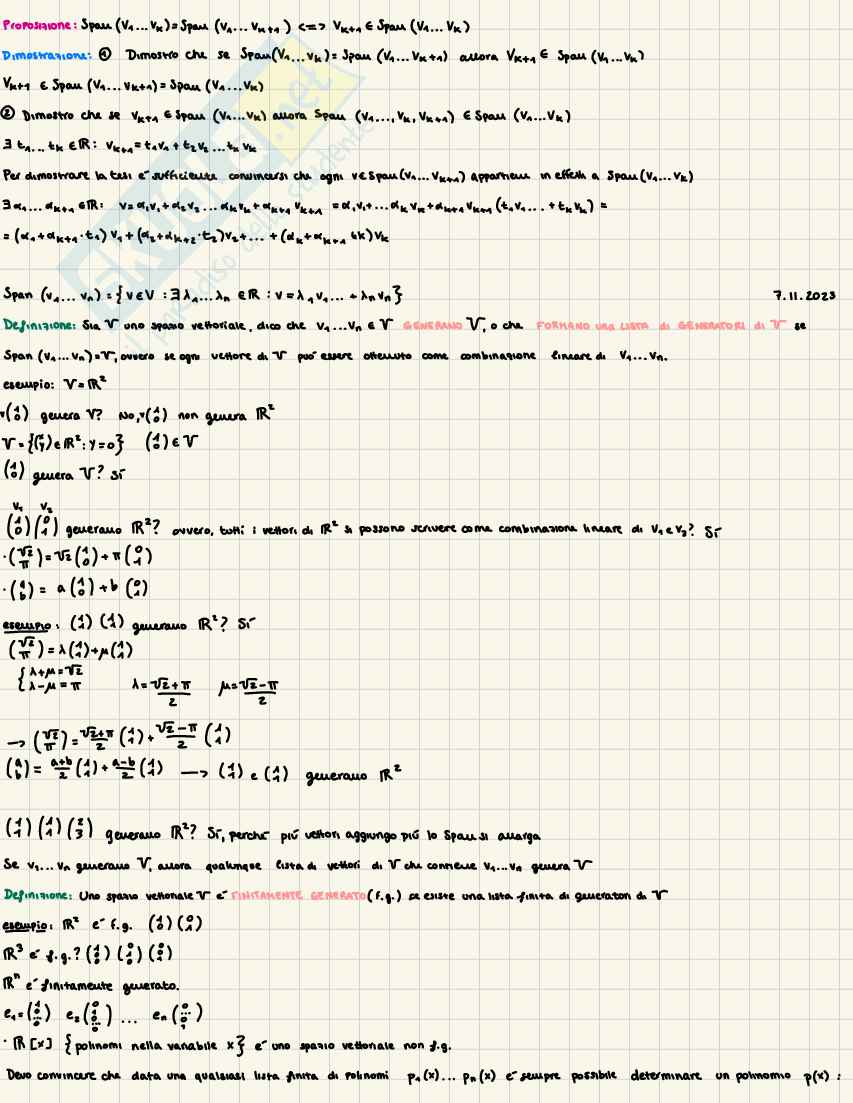 Proposizione: Span (v₁...vₖ)=Span (v₁...vₖ₊₁) <=> vₖ₊₁ ∈ Span (v₁...vₖ)
Dimostrazione: ① Dimostro che se Span(v₁...vₖ)=Span (v₁...vₖ₊₁) allora vₖ₊₁ ∈ Span (v₁...vₖ)
vₖ₊₁ ∈ Span (v₁...vₖ₊₁)=Span (v₁...vₖ)
② Dimostro che se vₖ₊₁ ∈ Span (v₁...vₖ) allora Span (v₁...,vₖ,vₖ₊₁) ∈ Span (v₁...vₖ)
∃ t₁...tₖ ∈ ℝ: vₖ₊₁=t₁v₁+t₂v₂...tₖvₖ
Per dimostrare la tesi e' sufficiente convincersi che ogni v∈Span(v₁...vₖ₊₁) appartiene in effetti a Span(v₁...vₖ)
∃ α₁...αₖ₊₁ ∈ ℝ: v=α₁v₁+α₂v₂...αₖvₖ+αₖ₊₁vₖ₊₁ =α₁v₁+...αₖvₖ+αₖ₊₁vₖ₊₁(t₁v₁...+tₖvₖ) =
=(α₁+αₖ₊₁·t₁)v₁+(α₂+αₖ₊₂·t₂)v₂+...+(αₖ+αₖ₊₁tk)vₖ
Span (v₁...vₙ)={v∈V :∃λ₁...λₙ ∈ℝ:v=λ₁v₁...+λₙvₙ} 7.11.2023
Definizione: Sia V uno spazio vettoriale, dico che v₁...vₙ ∈ V GENERANO V, o che FORMANO UNA LISTA di GENERATORI di V se
Span (v₁...vₙ)=V, ovvero se ogni vettore di V puó essere ottenuto come combinazione lineare di v₁...vₙ.
esempio: V=ℝ²
v(1 0) genera V? No,v(1 0) non genera ℝ²
V={(x y)∈ℝ²:y=0} (1 0)∈V
(1 0) genera V? Sí
v₁ v₂
(1 0)(0 1) generano ℝ²? ovvero, tutti i vettori di ℝ² si possono scrivere come combinazione lineare di v₁ e v₂? Sí
·(√2 π)=√2(1 0)+π(0 1)
·(a b)= a(1 0)+b(0 1)
esempio: (1 1)(1 -1) generano ℝ²? Sí
(√2 π)=λ(1 1)+μ(1 -1)
{λ+μ=√2
λ-μ=π λ=√2+π/2 μ=√2-π/2
→ (√2 π)=√2+π/2 (1 1)+√2-π/2 (1 -1)
(a b)= a+b/2 (1 1)+a-b/2 (1 -1) → (1 1) e (1 -1) generano ℝ²
(1 1)(1 -1)(2 3) generano ℝ²? Sí, perché piú vettori aggiungo piú lo Span si allarga
Se v₁...vₙ generano V, allora qualunque lista di vettori di V che contiene v₁...vₙ genera V
Definizione: Uno spazio vettoriale V e' FINITAMENTE GENERATO (f.g.) se esiste una lista finita di generatori di V
esempio: ℝ² e' f.g. (1 0)(0 1)
ℝ³ e' f.g.? (1 0 0)(0 1 0)(0 0 1)
ℝⁿ e' finitamente generato.
e₁=(1 0 ... 0) e₂(0 1 0 ... 0) ... eₙ(0 ... 1)
· ℝ[x] {polinomi nella variabile x} e' uno spazio vettoriale non f.g.
Devo convincere che data una qualsiasi lista finita di polinomi p₁(x)...pₙ(x) e' sempre possibile determinare un polinomio p(x) :
SKUOLA.net
il paradiso dello studente